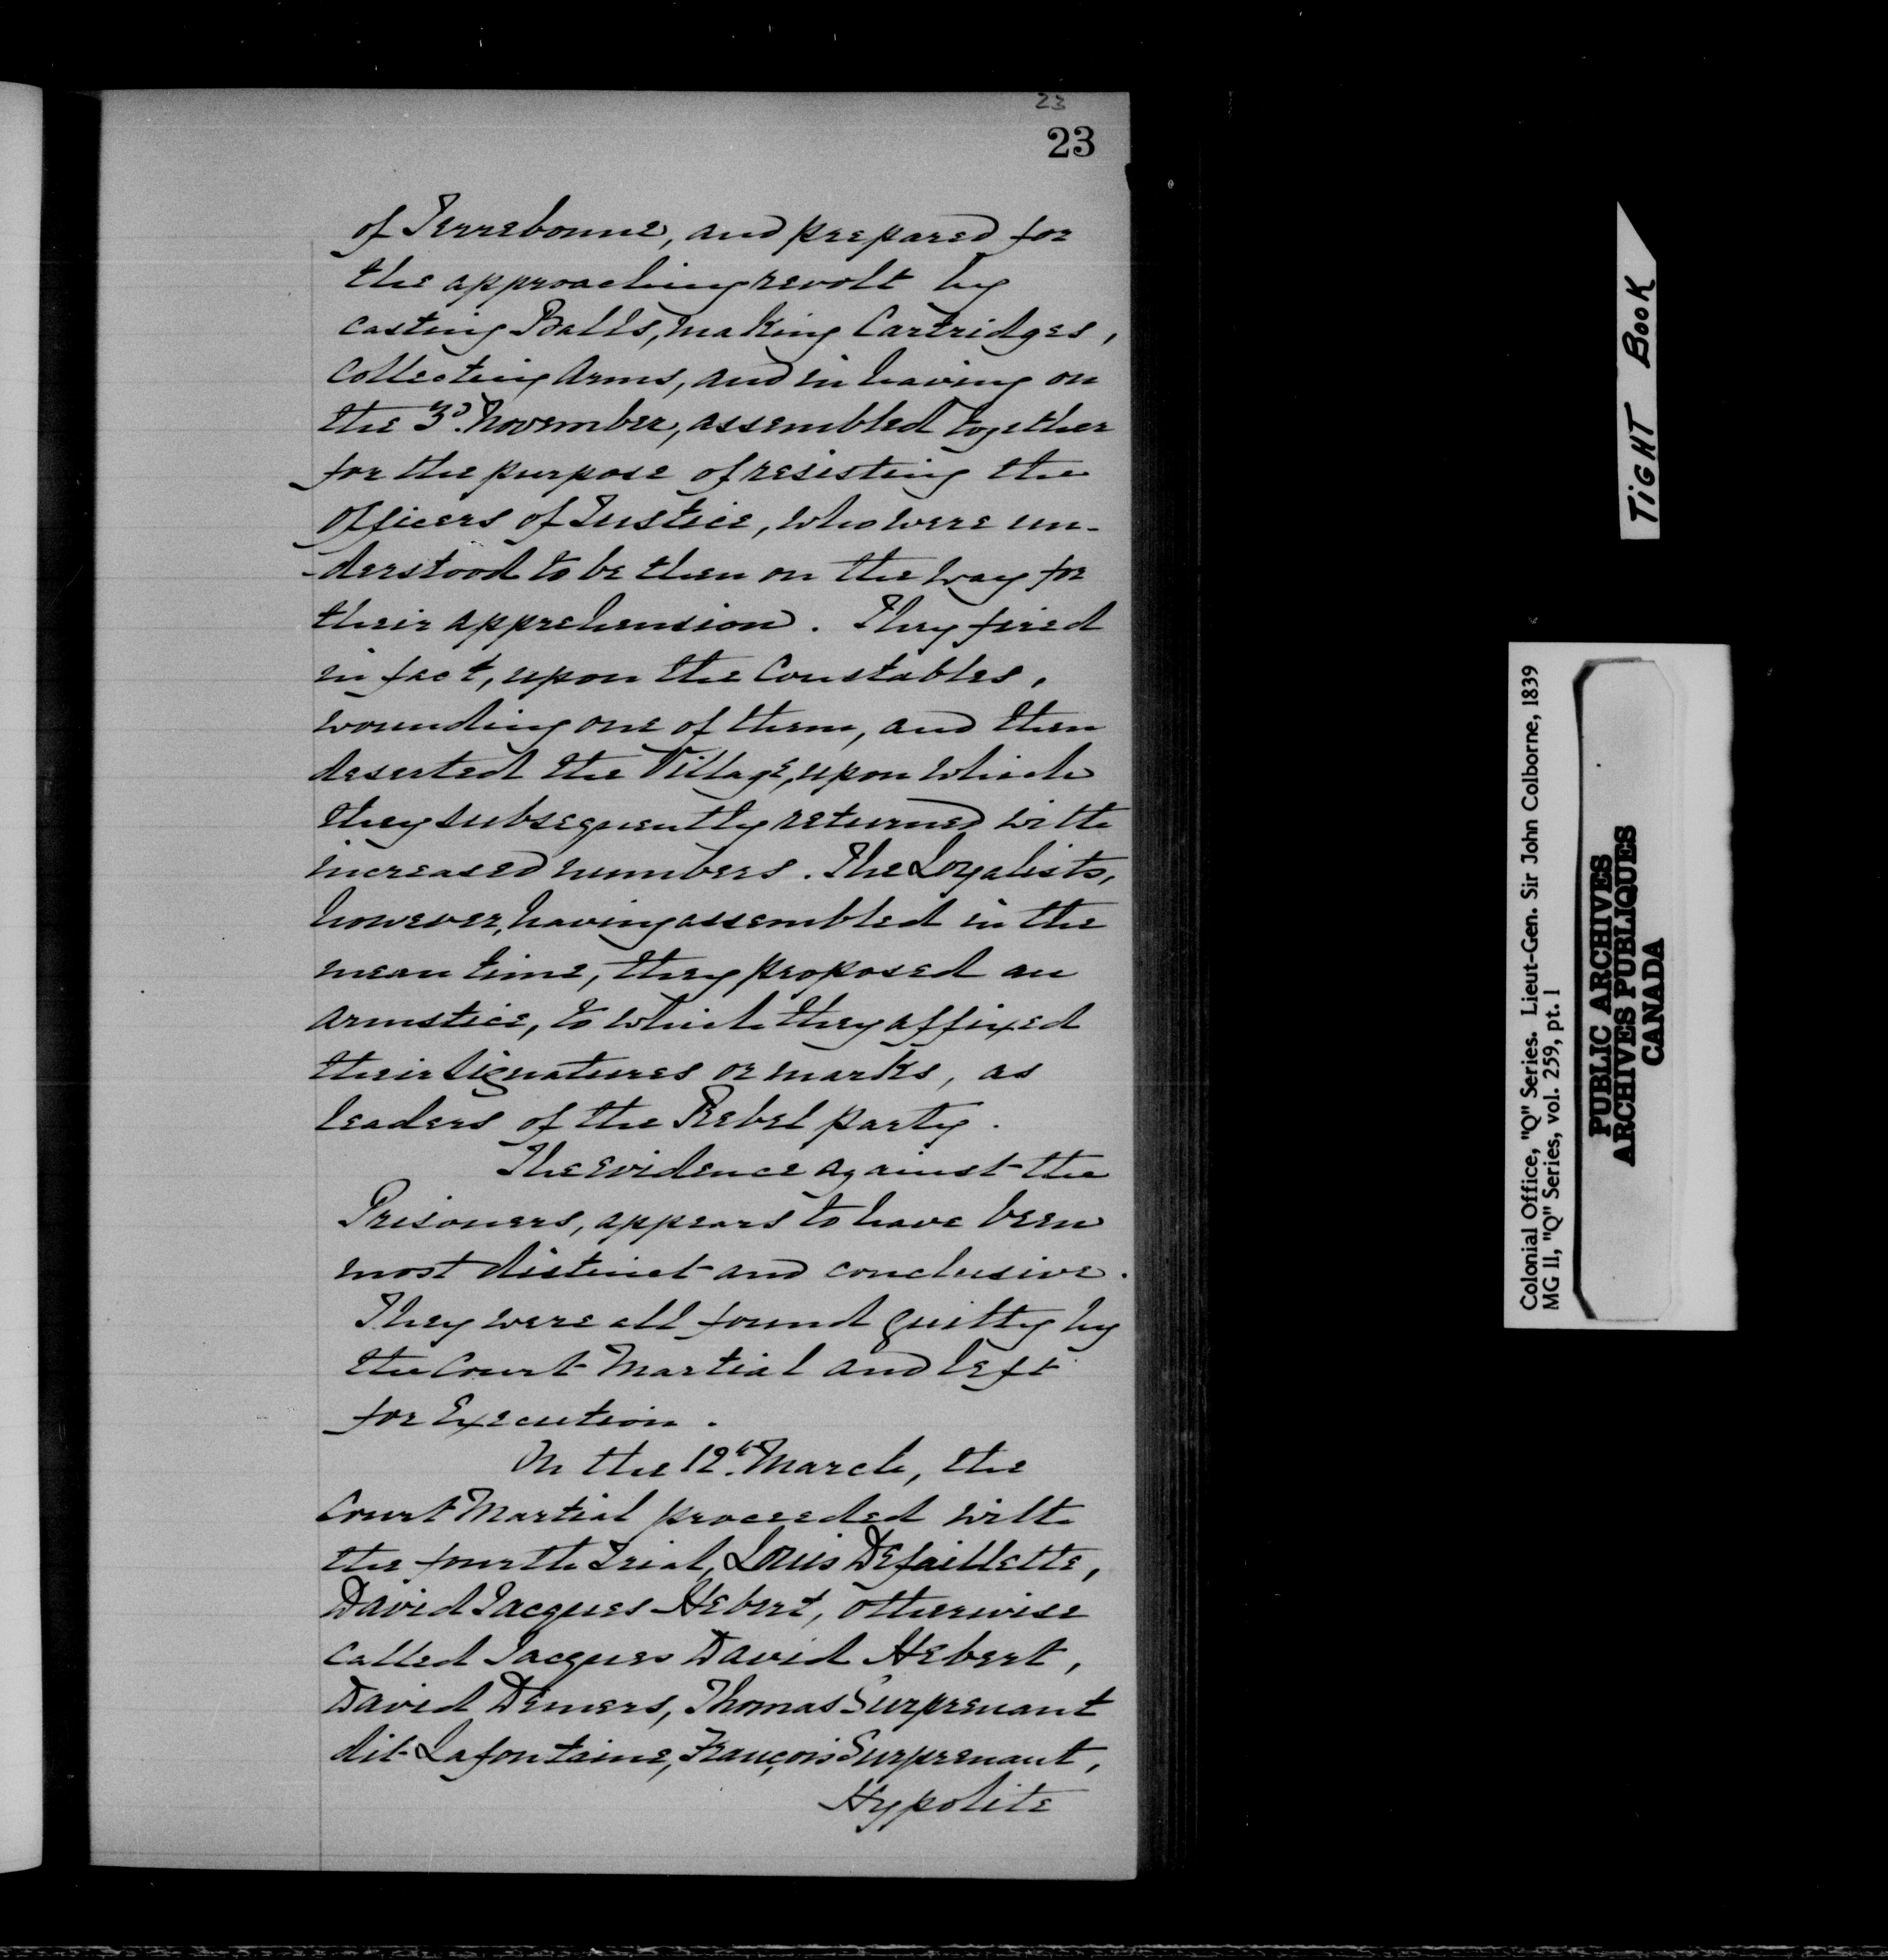 23
23
of Terrebonne, and prepared for
the approaching revolt by
casting Balls, making Cartridges,
collecting Arms, and in having on
the 3d. November, assembled together
for the purpose of resisting the
Officers of Justice, who were un-
-derstood to be then on the way for
their apprehension. They fired
in fact, upon the Constables,
wounding one of them, and then
deserted the Village, upon which
they subsequently returned with
increased numbers. The Loyalists,
however, having assembled in the
mean time, they proposed an
armstice, to which they affixed
their signatures or marks, as
leaders of the Rebel party.
The evidence against the
Prisoners, appears to have been
most distinct and conclusive.
They were all found guilty by
the Court Martial and left
for Execution.
On the 12th. March, the
Court Martial proceeded with
the fourth Trial, Louis Defaillette,
David Jacques Hebert, otherwise
called Jacques David Hebert,
David Demers, Thomas Surprenant
dit Lafontaine, François Surprenant,
Hypolite
TIGHT BOOK
Colonial Office, "Q" Series. Lieut-Gen. Sir John Colborne, 1839
MG 11, "Q" Series, vol. 259, pt. 1
PUBLIC ARCHIVES
ARCHIVES PUBLIQUES
CANADA